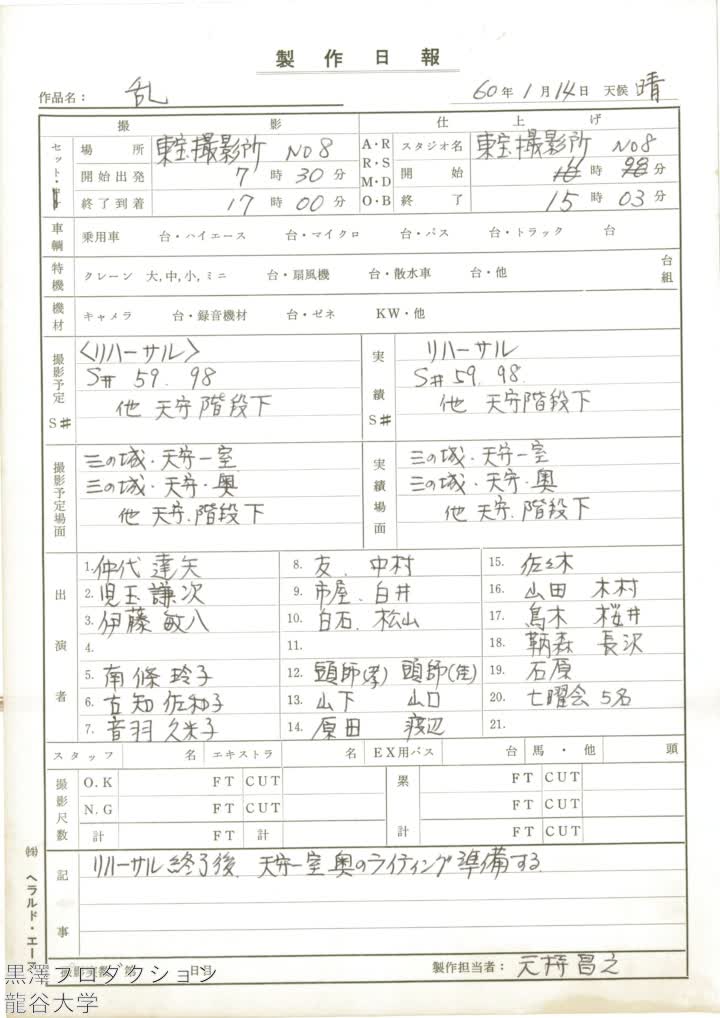 製作日報
作品名： 乱 60年 1月 14日 天候 晴
撮影 仕上げ
セット・ 場所 東宝撮影所 No8 A・R R・S M・D O・B スタジオ名 東宝撮影所 No8
開始出発 7時30分 開始 時 分
終了到着 17時00分 終了 15時03分
車輌 乗用車 台・ハイエース 台・マイクロ 台・バス 台・トラック 台
特機 クレーン 大,中,小,ミニ 台・扇風機 台・散水車 台・他 台組
機材 キャメラ 台・録音機材 台・ゼネ KW・他
撮影予定 S# 〈リハーサル〉 実績 S# リハーサル
S# 59. 98 S# 59. 98.
他 天守階段下 他 天守階段下
撮影予定場面 三の城・天守一室 実績場面 三の城・天守一室
三の城・天守・奥 三の城・天守・奥
他 天守.階段下 他 天守.階段下
出演者 1. 仲代達矢 8. 友. 中村 15. 佐々木
2. 児玉謙次 9. 市屋. 白井 16. 山田 木村
3. 伊藤敏八 10. 白石. 松山 17. 鳥木 桜井
4. 11. 18. 鞆森 長沢
5. 南條玲子 12. 頭師(孝) 頭師(佳) 19. 石原
6. 古知佐和子 13. 山下 山口 20. 七曜会 5名
7. 音羽久米子 14. 原田 渡辺 21.
スタッフ 名 エキストラ 名 EX用バス 台 馬・他 頭
撮影尺数 O.K FT CUT 累計 FT CUT
N.G FT CUT FT CUT
計 FT 計 FT CUT
記事 リハーサル終了後. 天守一室 奥のライティング準備する.
撮影実数 第 日目 製作担当者：
㈱ ヘラルド・エース
黒澤プロダクション
龍谷大学